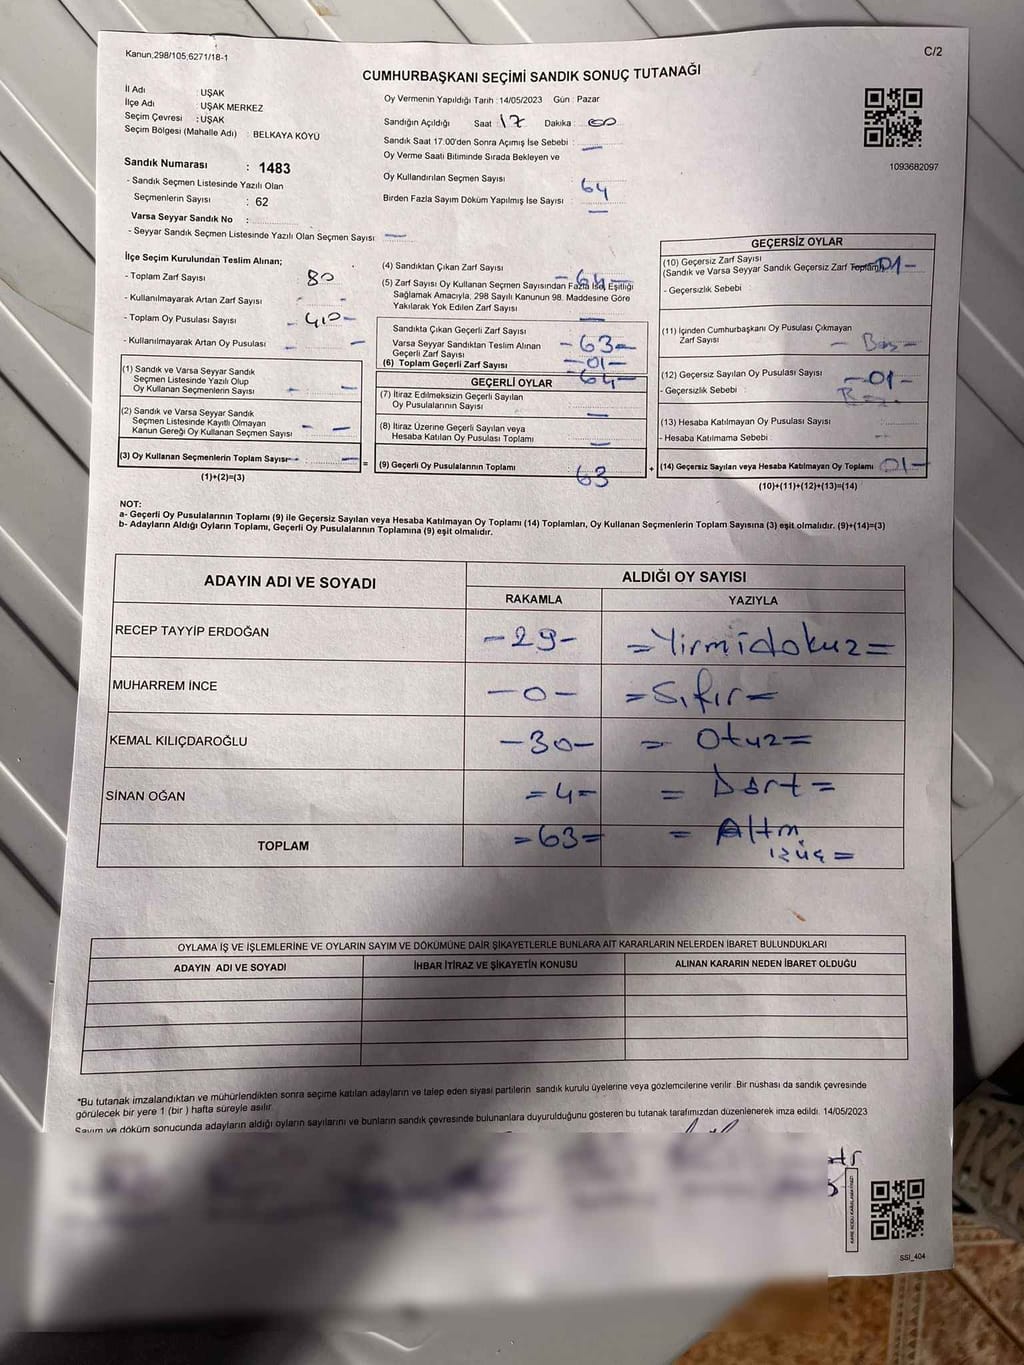 Kanun,298/105,6271/18-1
C/2
CUMHURBAŞKANI SEÇİMİ SANDIK SONUÇ TUTANAĞI
İl Adı : UŞAK
İlçe Adı : UŞAK MERKEZ
Seçim Çevresi : UŞAK
Seçim Bölgesi (Mahalle Adı) : BELKAYA KÖYÜ
Sandık Numarası : 1483
- Sandık Seçmen Listesinde Yazılı Olan
Seçmenlerin Sayısı : 62
Varsa Seyyar Sandık No :
- Seyyar Sandık Seçmen Listesinde Yazılı Olan Seçmen Sayısı: —
Oy Vermenin Yapıldığı Tarih : 14/05/2023 Gün : Pazar
Sandığın Açıldığı Saat 17 Dakika : 00
Sandık Saat 17.00'den Sonra Açımış İse Sebebi : —
Oy Verme Saati Bitiminde Sırada Bekleyen ve
Oy Kullandırılan Seçmen Sayısı 64
Birden Fazla Sayım Döküm Yapılmış İse Sayısı : —
1093682097
İlçe Seçim Kurulundan Teslim Alınan;
- Toplam Zarf Sayısı : 80
- Kullanılmayarak Artan Zarf Sayısı : - -
- Toplam Oy Pusulası Sayısı : - 410 -
- Kullanılmayarak Artan Oy Pusulası : - -
(1) Sandık ve Varsa Seyyar Sandık
Seçmen Listesinde Yazılı Olup
Oy Kullanan Seçmenlerin Sayısı : - —
(2) Sandık ve Varsa Seyyar Sandık
Seçmen Listesinde Kayıtlı Olmayan
Kanun Gereği Oy Kullanan Seçmen Sayısı : - —
(3) Oy Kullanan Seçmenlerin Toplam Sayısı : - —
(1)+(2)=(3)
=
(4) Sandıktan Çıkan Zarf Sayısı - 64 -
(5) Zarf Sayısı Oy Kullanan Seçmen Sayısından Fazla İse, Eşitliği
Sağlamak Amacıyla, 298 Sayılı Kanunun 98. Maddesine Göre
Yakılarak Yok Edilen Zarf Sayısı : —
Sandıkta Çıkan Geçerli Zarf Sayısı
Varsa Seyyar Sandıktan Teslim Alınan
Geçerli Zarf Sayısı - 63 -
(6) Toplam Geçerli Zarf Sayısı - 01 -
- 64 -
GEÇERLİ OYLAR
(7) İtiraz Edilmeksizin Geçerli Sayılan
Oy Pusulalarının Sayısı : —
(8) İtiraz Üzerine Geçerli Sayılan veya
Hesaba Katılan Oy Pusulası Toplamı : —
(9) Geçerli Oy Pusulalarının Toplamı : 63
+
GEÇERSİZ OYLAR
(10) Geçersiz Zarf Sayısı
(Sandık ve Varsa Seyyar Sandık Geçersiz Zarf Toplamı) 01 -
- Geçersizlik Sebebi :
(11) İçinden Cumhurbaşkanı Oy Pusulası Çıkmayan
Zarf Sayısı : - Boş -
(12) Geçersiz Sayılan Oy Pusulası Sayısı : - 01 -
- Geçersizlik Sebebi :
(13) Hesaba Katılmayan Oy Pusulası Sayısı :
- Hesaba Katılmama Sebebi : --
(14) Geçersiz Sayılan veya Hesaba Katılmayan Oy Toplamı 01 -
(10)+(11)+(12)+(13)=(14)
NOT:
a- Geçerli Oy Pusulalarının Toplamı (9) ile Geçersiz Sayılan veya Hesaba Katılmayan Oy Toplamı (14) Toplamları, Oy Kullanan Seçmenlerin Toplam Sayısına (3) eşit olmalıdır. (9)+(14)=(3)
b- Adayların Aldığı Oyların Toplamı, Geçerli Oy Pusulalarının Toplamına (9) eşit olmalıdır.
ADAYIN ADI VE SOYADI ALDIĞI OY SAYISI
RAKAMLA YAZIYLA
RECEP TAYYİP ERDOĞAN - 29 - = Yirmidokuz =
MUHARREM İNCE - 0 - = Sıfır =
KEMAL KILIÇDAROĞLU - 30 - = Otuz =
SİNAN OĞAN = 4 = = Dört =
TOPLAM = 63 = = Altm
ışüç =
OYLAMA İŞ VE İŞLEMLERİNE VE OYLARIN SAYIM VE DÖKÜMÜNE DAİR ŞİKAYETLERLE BUNLARA AİT KARARLARIN NELERDEN İBARET BULUNDUKLARI
ADAYIN ADI VE SOYADI İHBAR İTİRAZ VE ŞİKAYETİN KONUSU ALINAN KARARIN NEDEN İBARET OLDUĞU
*Bu tutanak imzalandıktan ve mühürlendikten sonra seçime katılan adayların ve talep eden siyasi partilerin sandık kurulu üyelerine veya gözlemcilerine verilir. Bir nüshası da sandık çevresinde
görülecek bir yere 1 (bir ) hafta süreyle asılır.
Sayım ve döküm sonucunda adayların aldığı oyların sayılarını ve bunların sandık çevresinde bulunanlara duyurulduğunu gösteren bu tutanak tarafımızdan düzenlenerek imza edildi. 14/05/2023
SSI_404